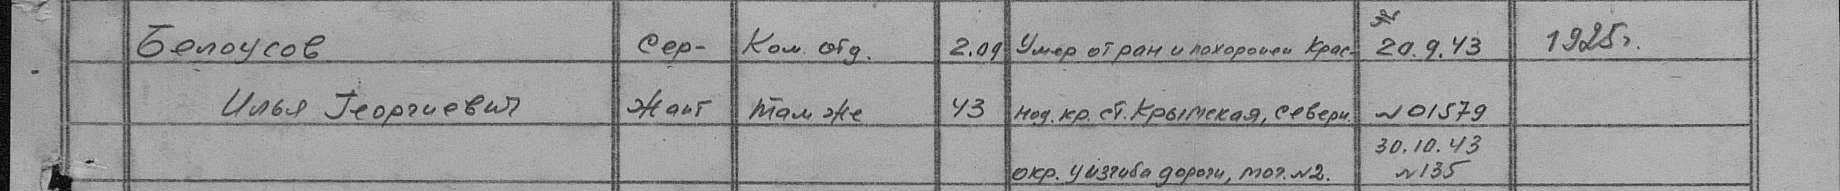 Белоусов Сер- Ком. отд. 2.09 Умер от ран и похоронен Крас- 20.9.43 1925г.
Илья Георгиевич жант Там же 43 нод. кр. ст. Крымская, северн. №01579
30.10.43
окр. у изгиба дороги, мог. №2. №135